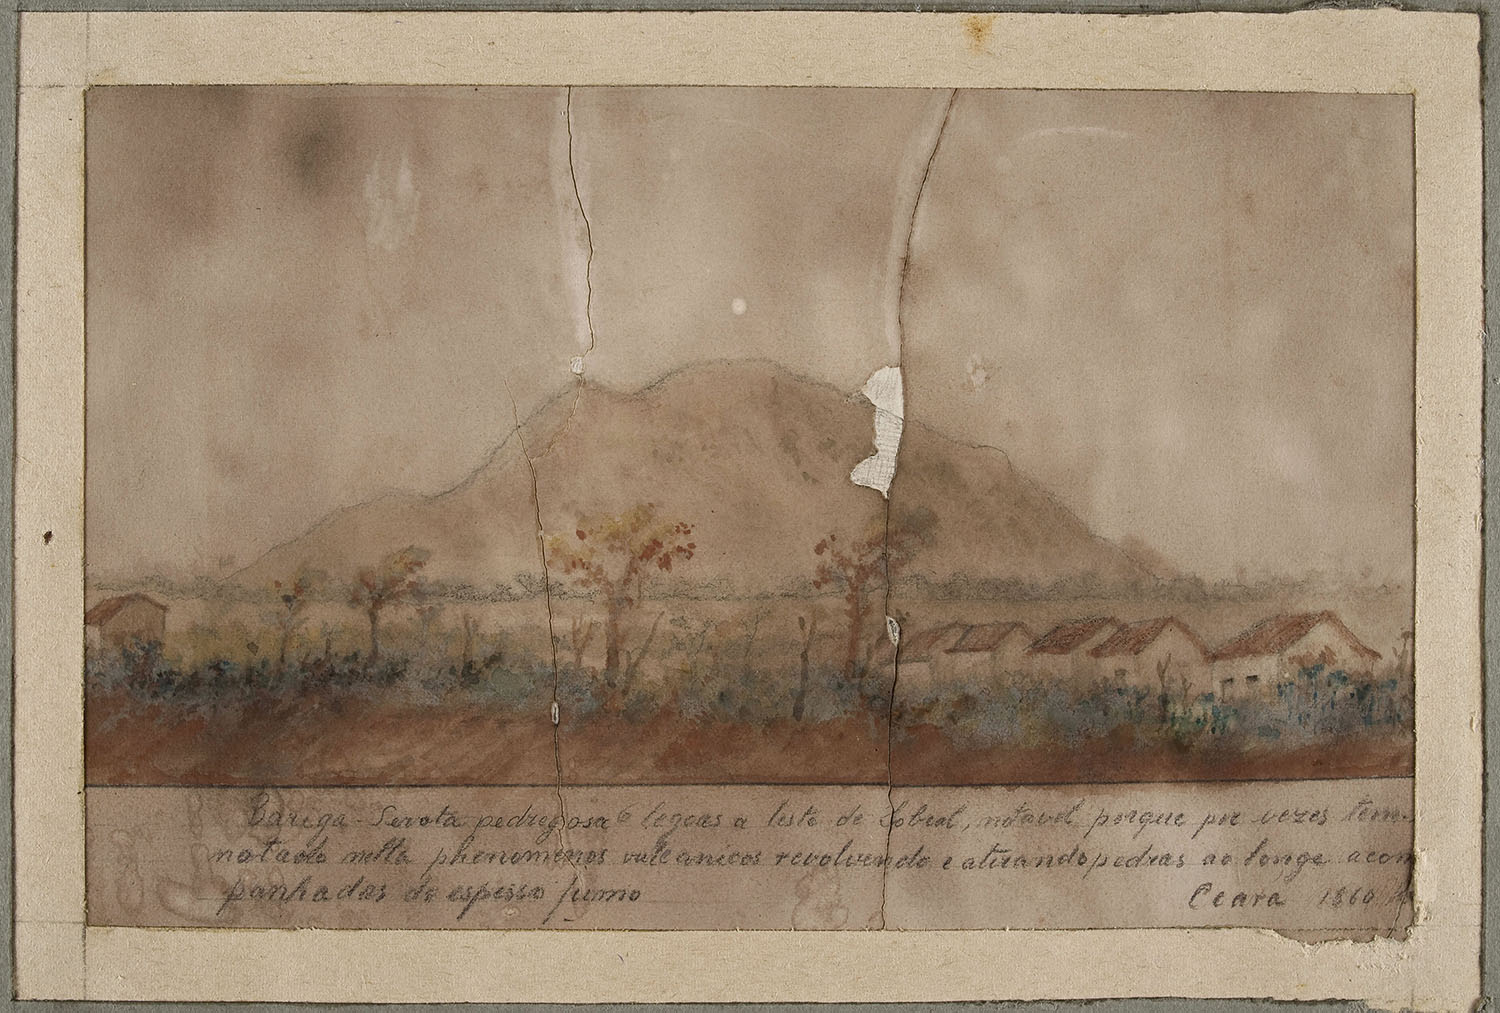 Bariga - Serota pedregosa 6 legoas a leste de Sobral, notavel porque por vezes tem-
notado nella phenomenos vulcanicos revolvendo e atirando pedras ao longe acom
panhadas de espesso fumo
Ceará 1860